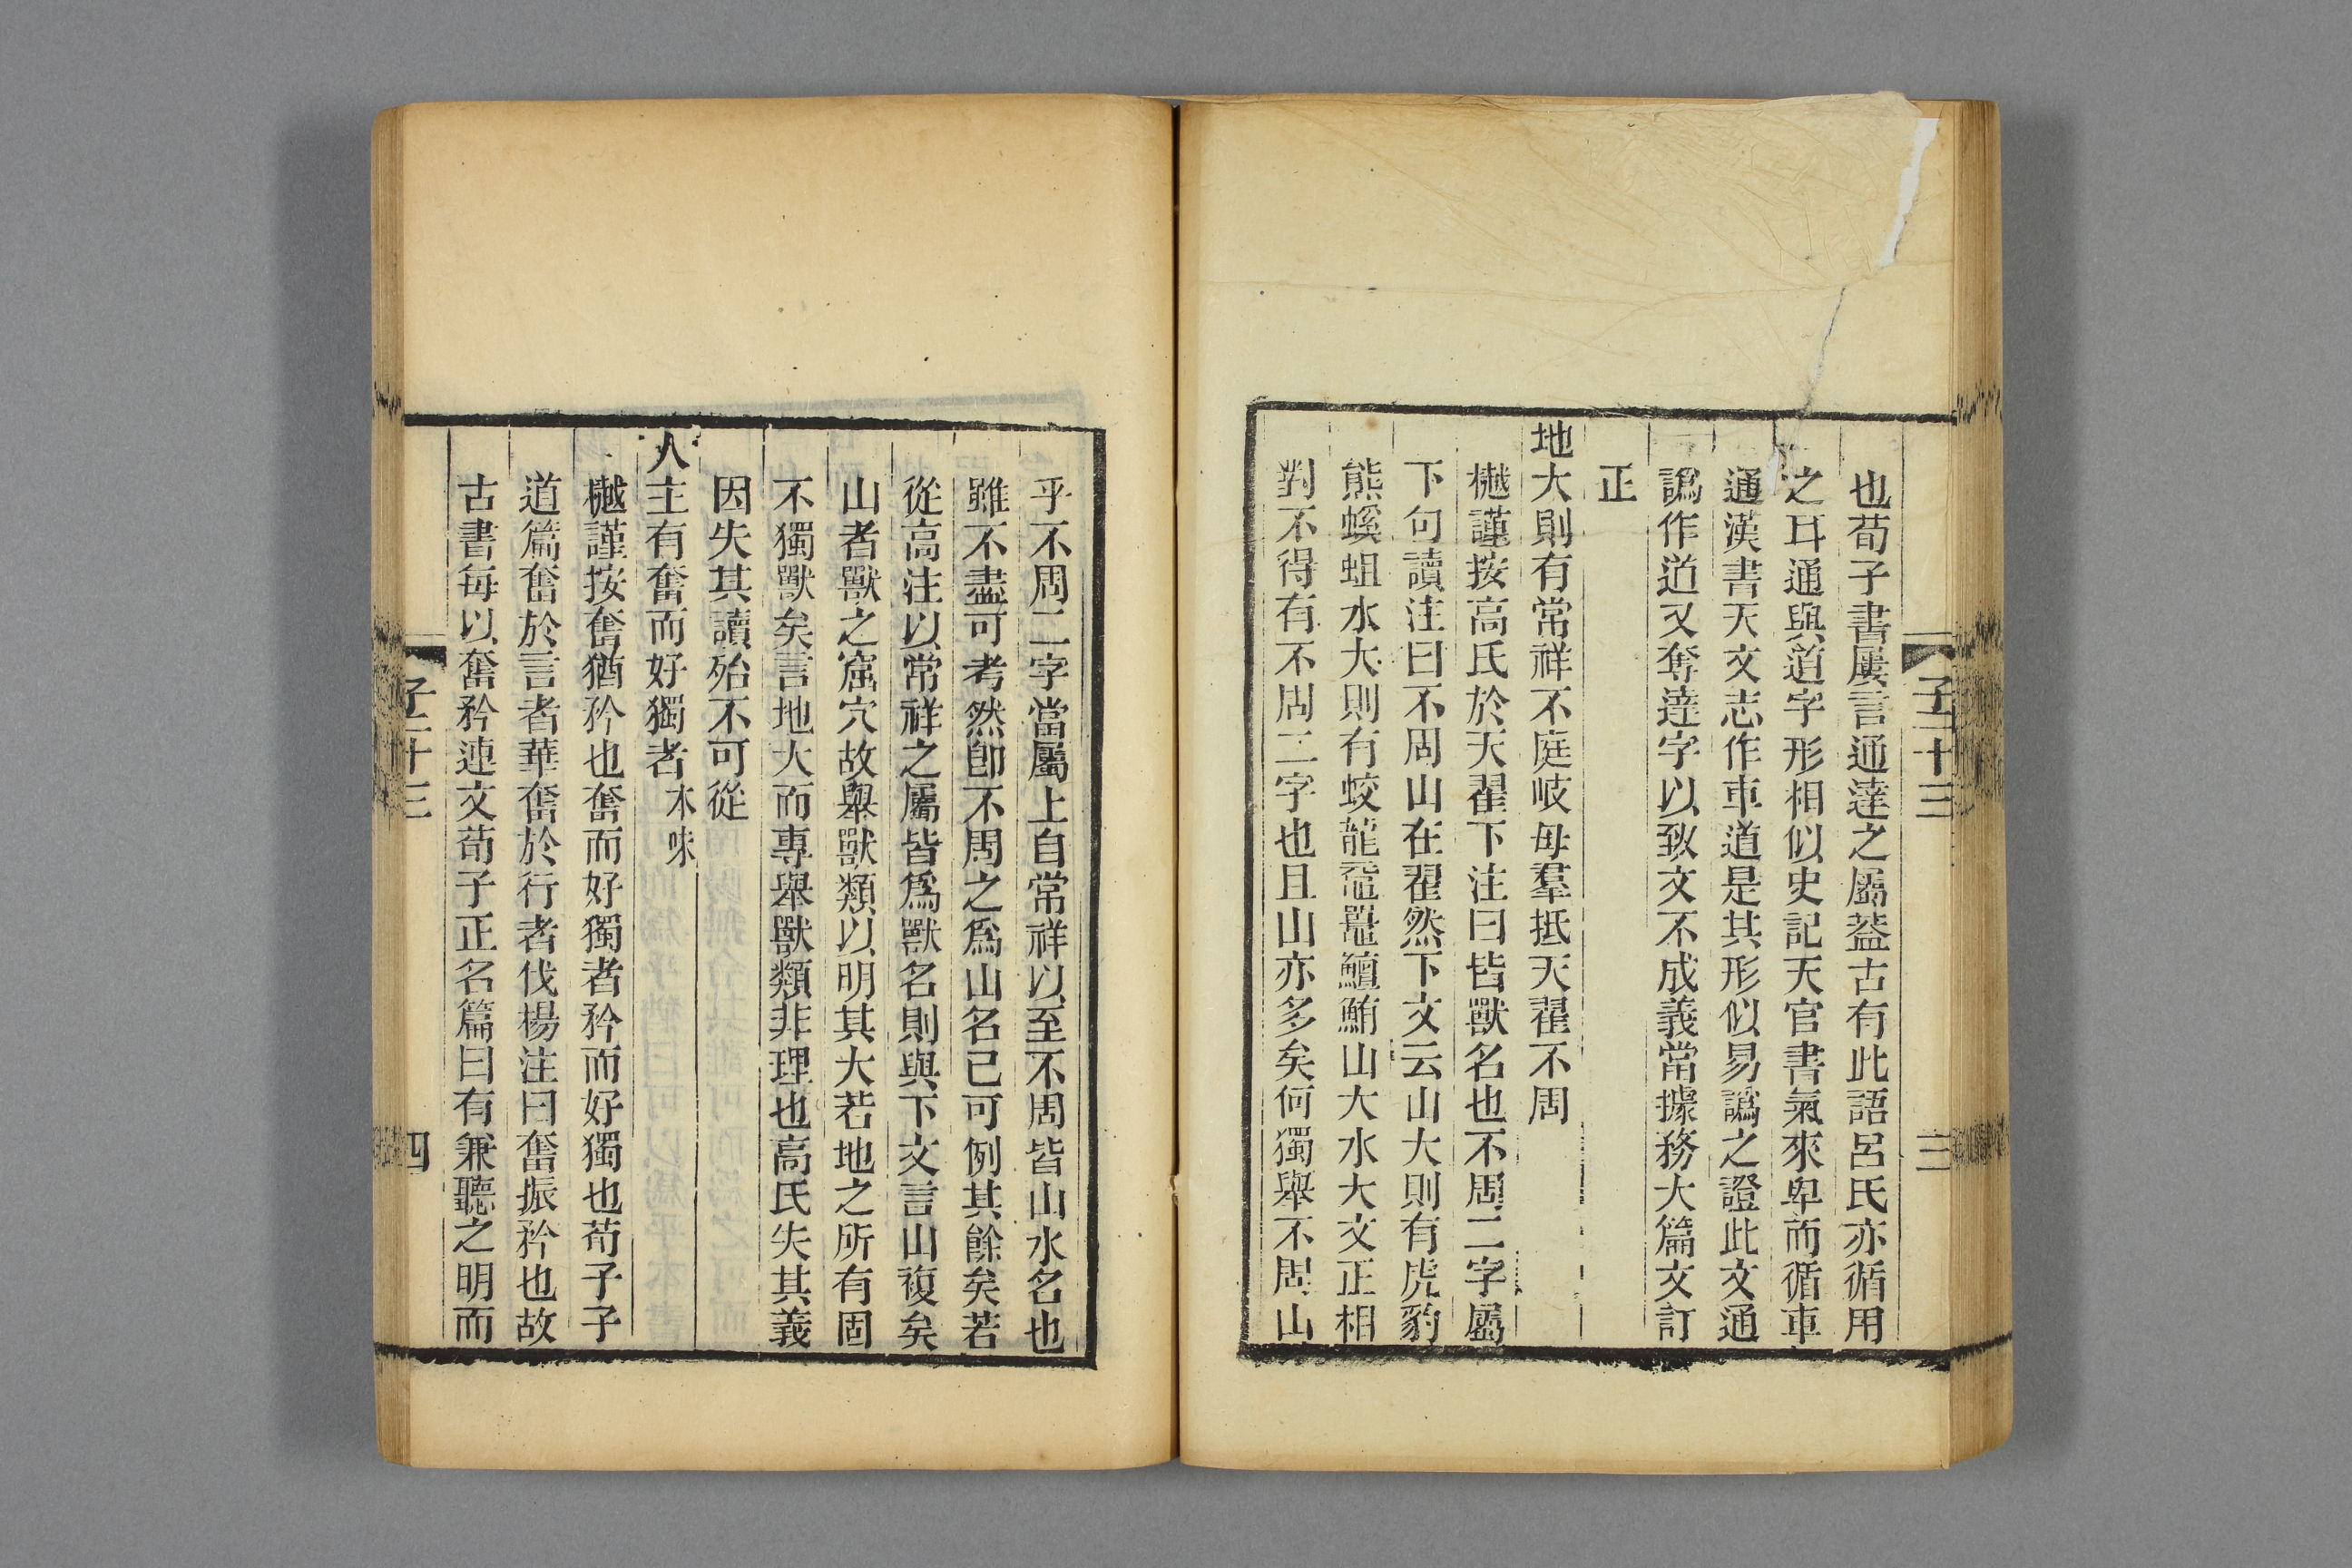 子二十三
三
也荀子書屢言通達之屬葢古有此語呂氏亦循用
之耳通與道字形相似史記天官書氣來卑而循車
通漢書天文志作車道是其形似易譌之證此文通
譌作道又奪達字以致文不成義當據務大篇文訂
正
地大則有常祥不庭岐母羣抵天翟不周
樾謹按高氏於天翟下注曰皆獸名也不周二字屬
下句讀注曰不周山在翟然下文云山大則有虎豹
熊螇蛆水大則有蛟龍黿鼉鱣鮪山大水大文正相
對不得有不周二字也且山亦多矣何獨舉不周山
乎不周二字當屬上自常祥以至不周皆山水名也
雖不盡可考然卽不周之爲山名已可例其餘矣若
從高注以常祥之屬皆爲獸名則與下文言山複矣
山者獸之窟穴故舉獸類以明其大若地之所有固
不獨獸矣言地大而專舉獸類非理也高氏失其義
因失其讀殆不可從
人主有奮而好獨者本味
樾謹按奮猶矜也奮而好獨者矜而好獨也荀子子
道篇奮於言者華奮於行者伐楊注曰奮振矜也故
古書每以奮矜連文荀子正名篇曰有兼聽之明而
子二十三
四